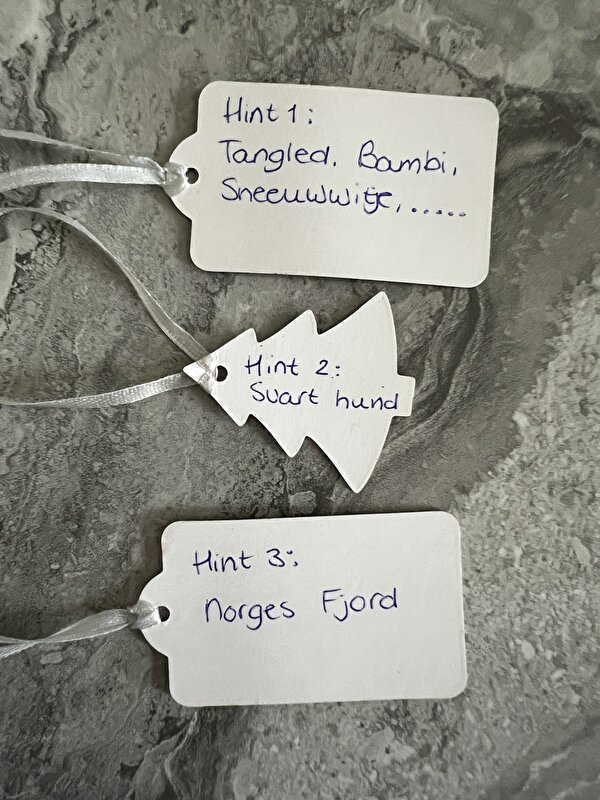 Hint 1:
Tangled, Bambi,
Sneeuwwitje, .....
Hint 2:
Svart hund
Hint 3:
Norges Fjord